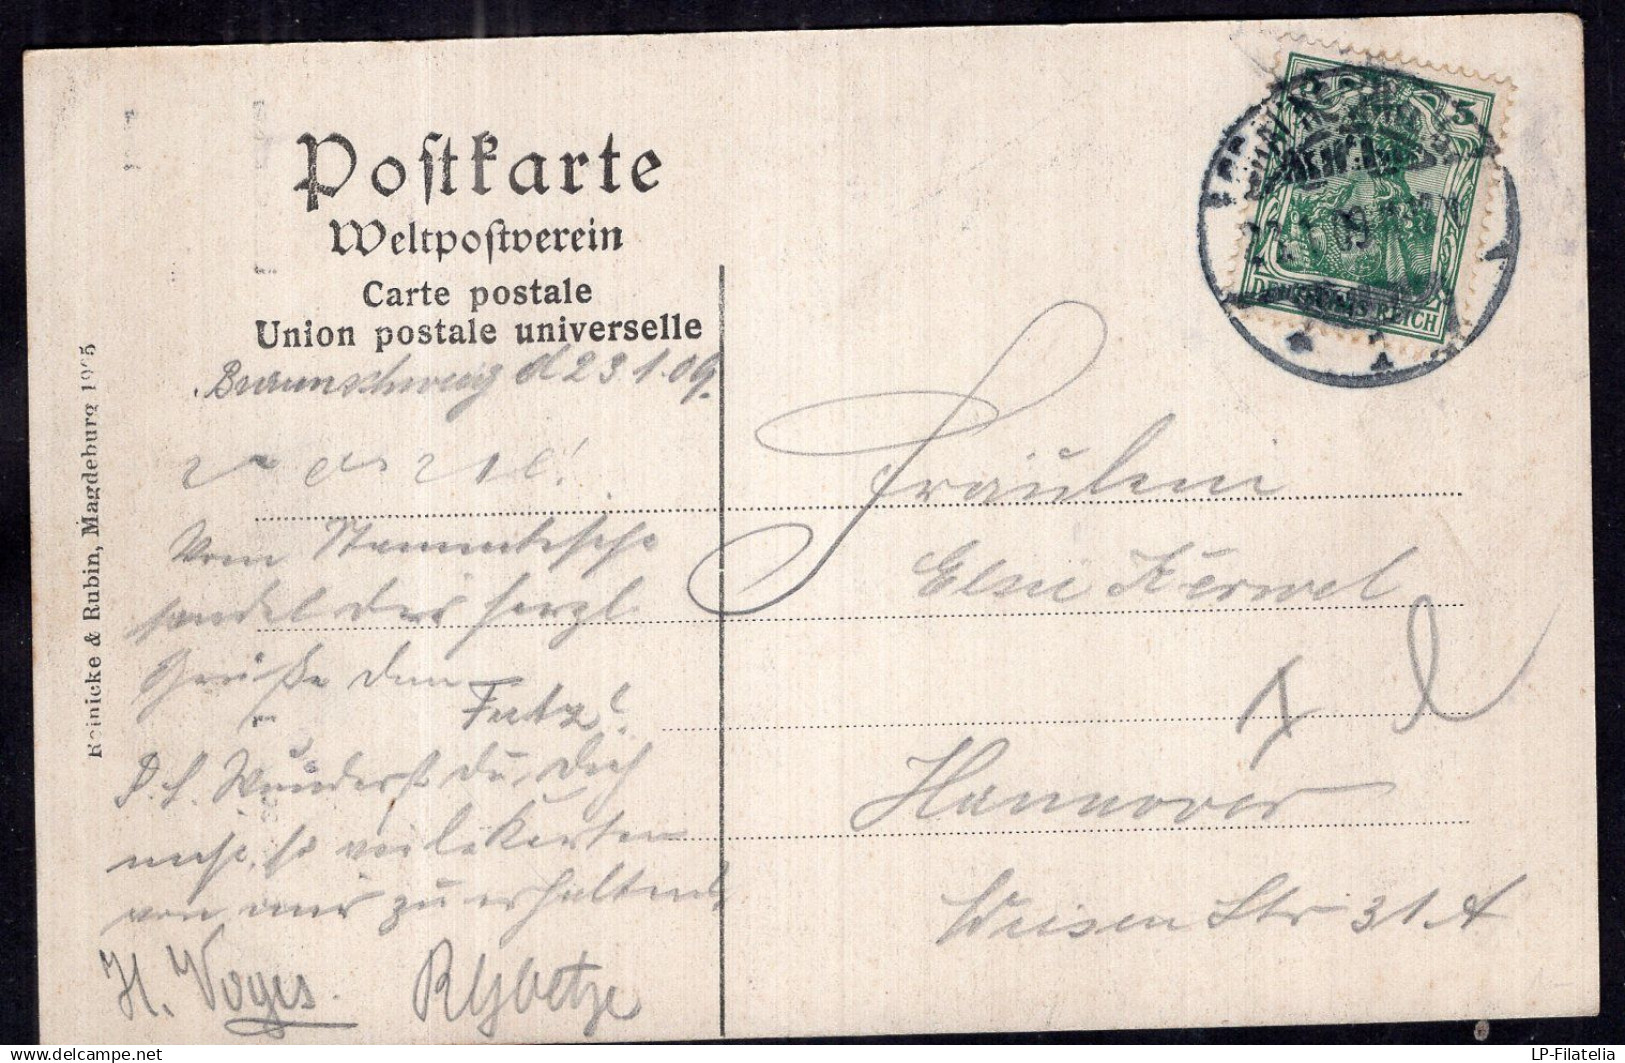 Postkarte
Weltpostverein
Carte postale
Union postale universelle
Braunschweig d 23.1.09.
Vom Stammtische
sendet dir herzl
Grüße dein
Fritz!
P.S. Wunderst du dich
nicht, so viele Karten
von mir zu erhalten?
H. Voges
Reinicke & Rubin, Magdeburg 1905
5
DEUTSCHES REICH
09
Fräulein
Elsie
Hannover
Wiesen Str 31 A
delcampe.net
LP-Filatelia